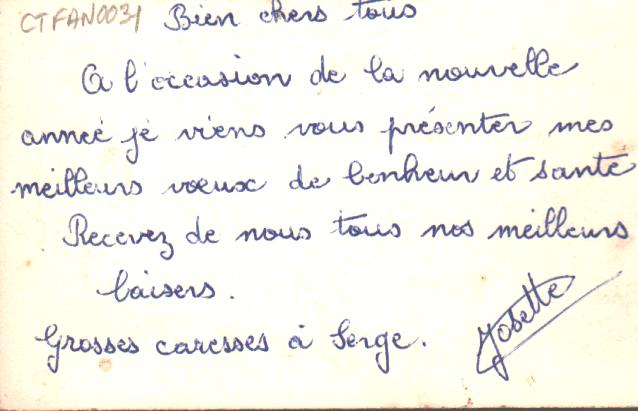 CTFAN0031 Bien chers tous
A l'occasion de la nouvelle
année je viens vous présenter mes
meilleurs voeux de bonheur et santé
Recevez de nous tous nos meilleurs
baisers.
Grosses caresses à Serge. Josette